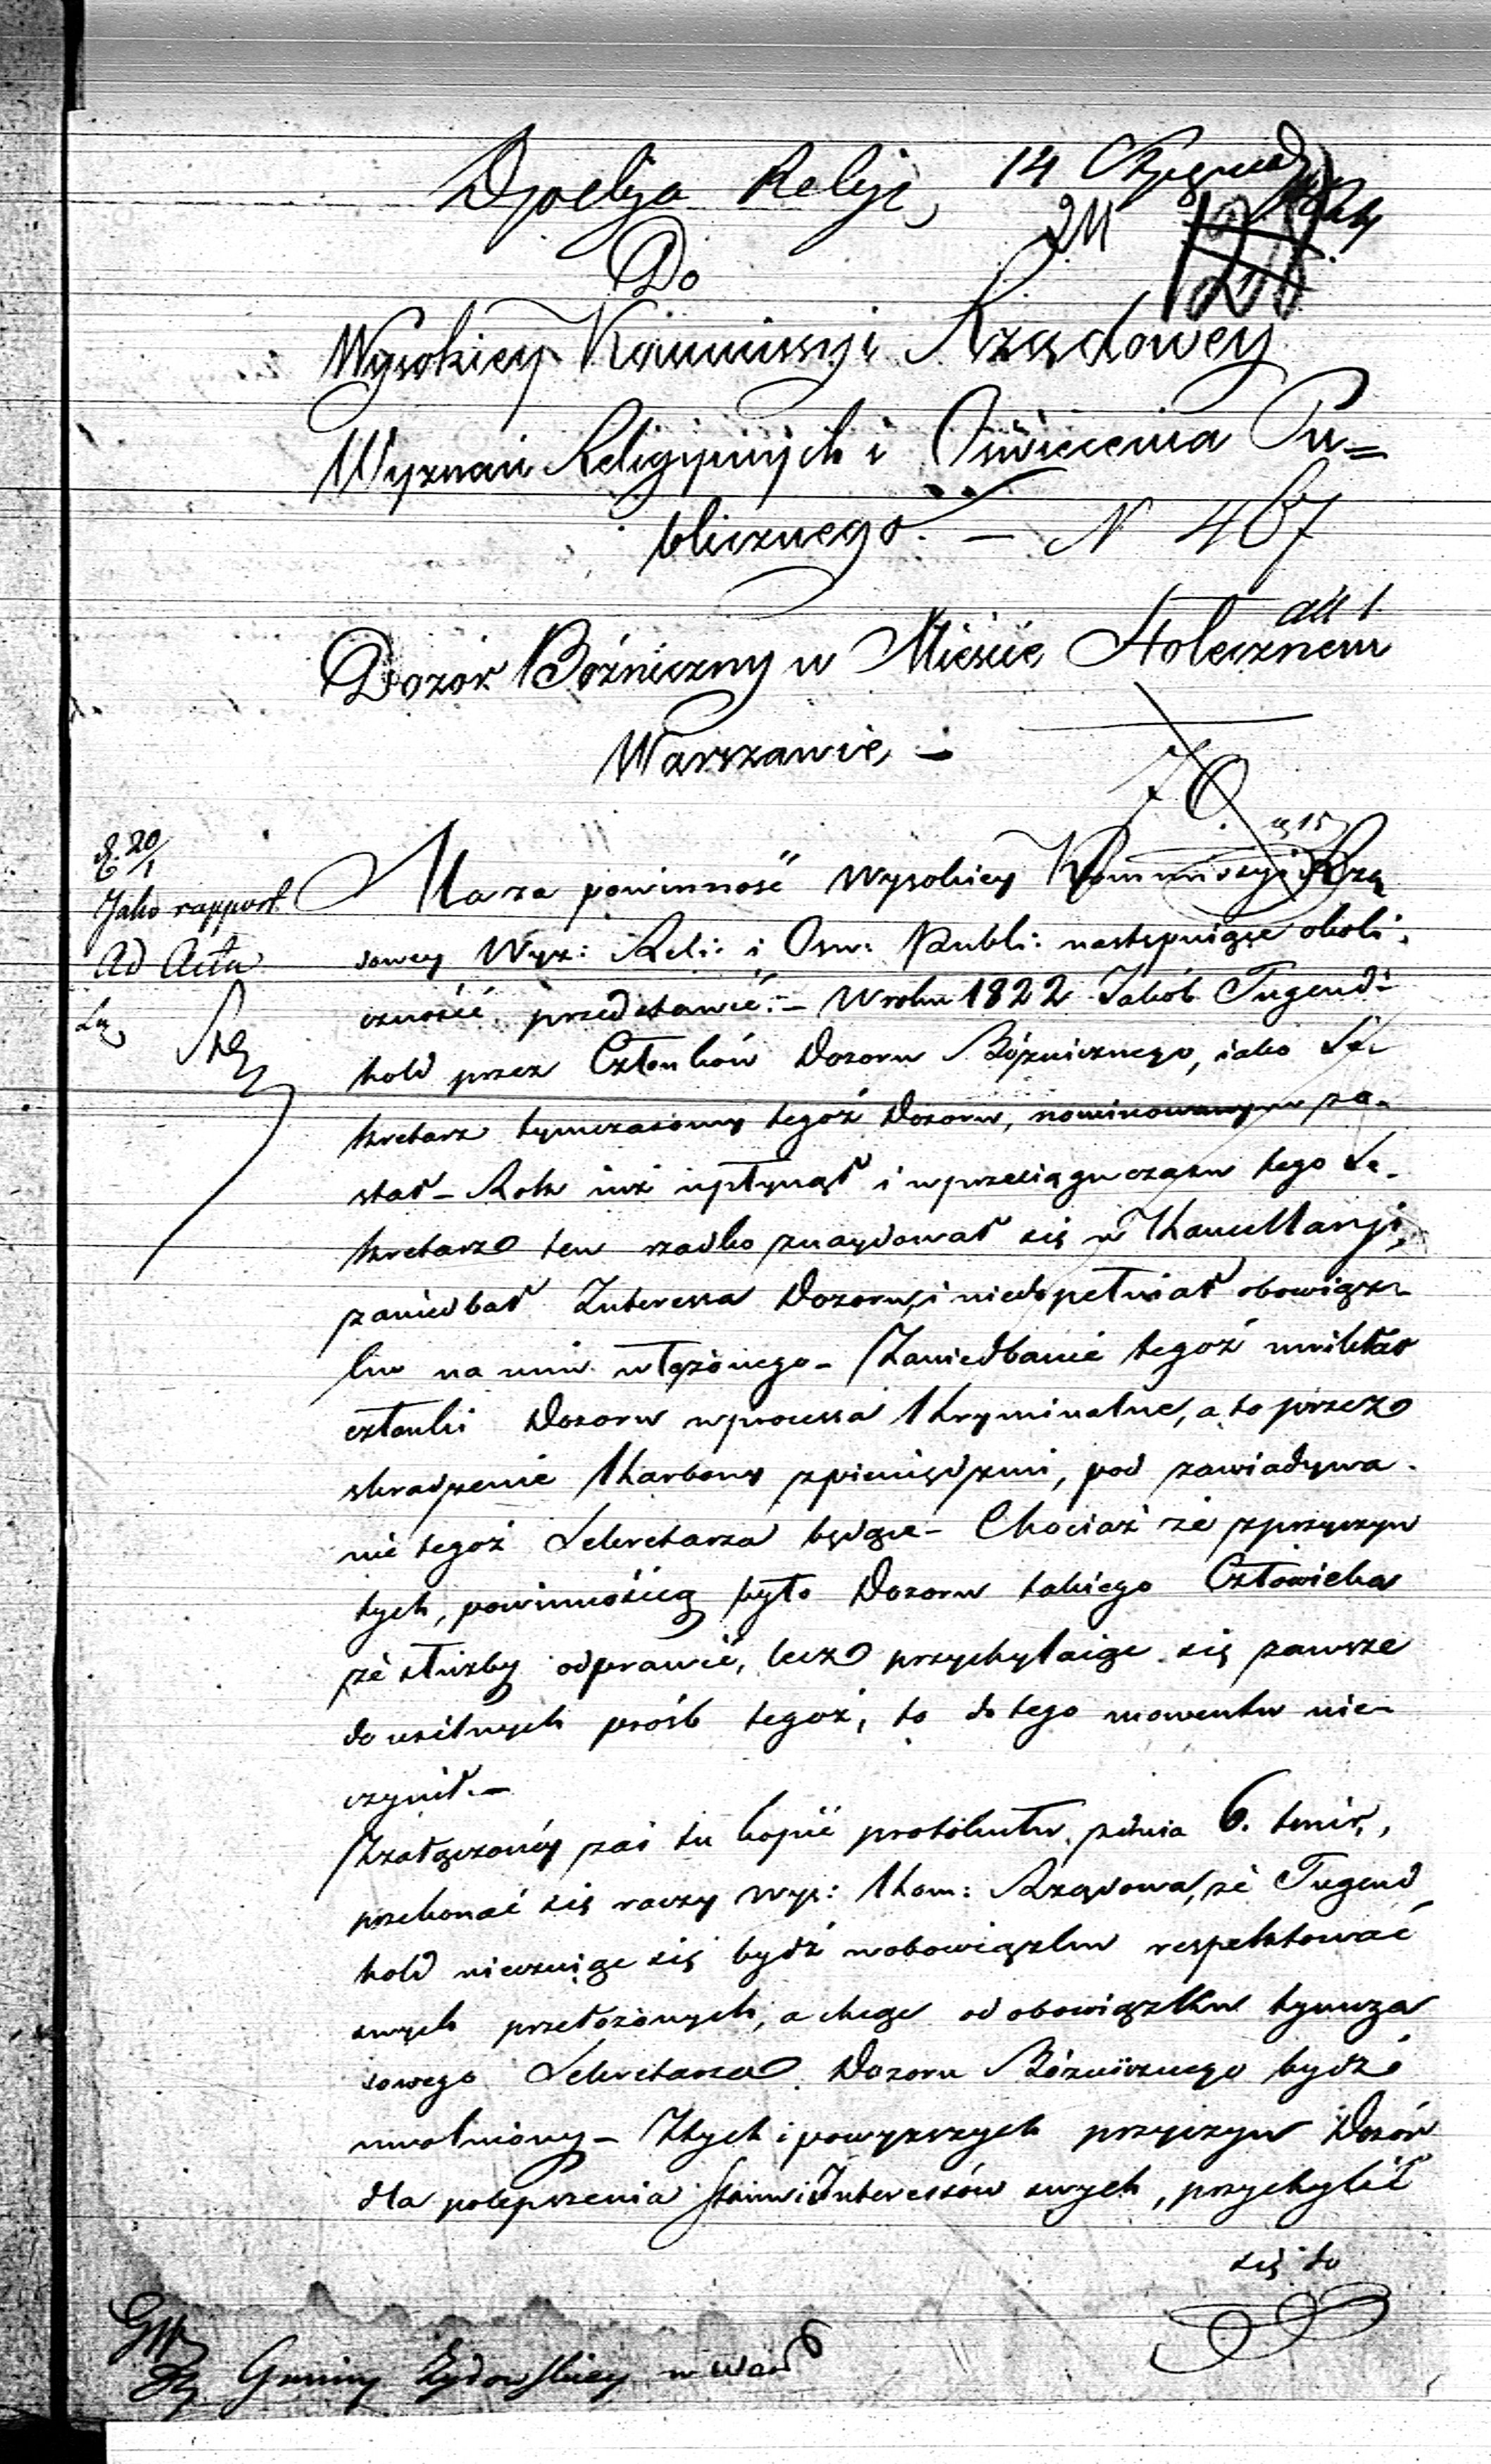 Dyrekcja Religi,
14 Stycznia
211
Do
Wysokiey Kommissyi Rządowey
Wyznań Religiynych i Oświecenia Pu=
blicznego. — N 467
all 1
Dozór Bóźniczny w Mieście Stołecznem
Warszawie —
Jako rapport
Ad Acta
Ma za powinność Wysokiey Kommissyi Rzą
dowey Wyz: Reli: i Osw: Publi: następuiące okoli-
czność przedstawić: — W roku 1822 Jakób Tugend-
hold przez Członków Dozoru Bóżnicznego, iako Se-
kretarz tymczasowy tegoż Dozoru, nominowanym zo-
stał — Rok iuż upłynął i w przeciągu czasu tego Se-
kretarz ten rzadko znaydował się w Kancellaryi,
zaniedbał Interessa Dozoru, i niedopełniał obowiąz-
ku na nim włożonego — Zaniedbanie tegoż uwikłało
członki Dozoru w processa Kryminalne, a to przez
skradzenie Karbony z pieniędzmi, pod zawiadywa-
nie tegoż Sekretarza będące — Chociaż że z przyczyn
tych, powinnością było Dozoru takiego Człowieka
ze służby odprawić, lecz przychylaiąc się zawsze
do usilnych prośb tegoż, to do tego momentu nie-
czynił. —
Z załączonéy zaś tu kopii protokułu z dnia 6. tmir,
przekonać się raczy Wys: Kom: Rządowa, że Tugend
hold nieczuiąc się bydź w obowiązku respektować
swych przełożonych, a chcąc od obowiązku tymcza
sowego Sekretarza Dozoru Bóżnicznego bydź
uwolniony — Z tych i powyższych przyczyn Dozór
dla polepszenia stanu Interessów swych, przychylił
się do
Gminy Żydowskiey w War